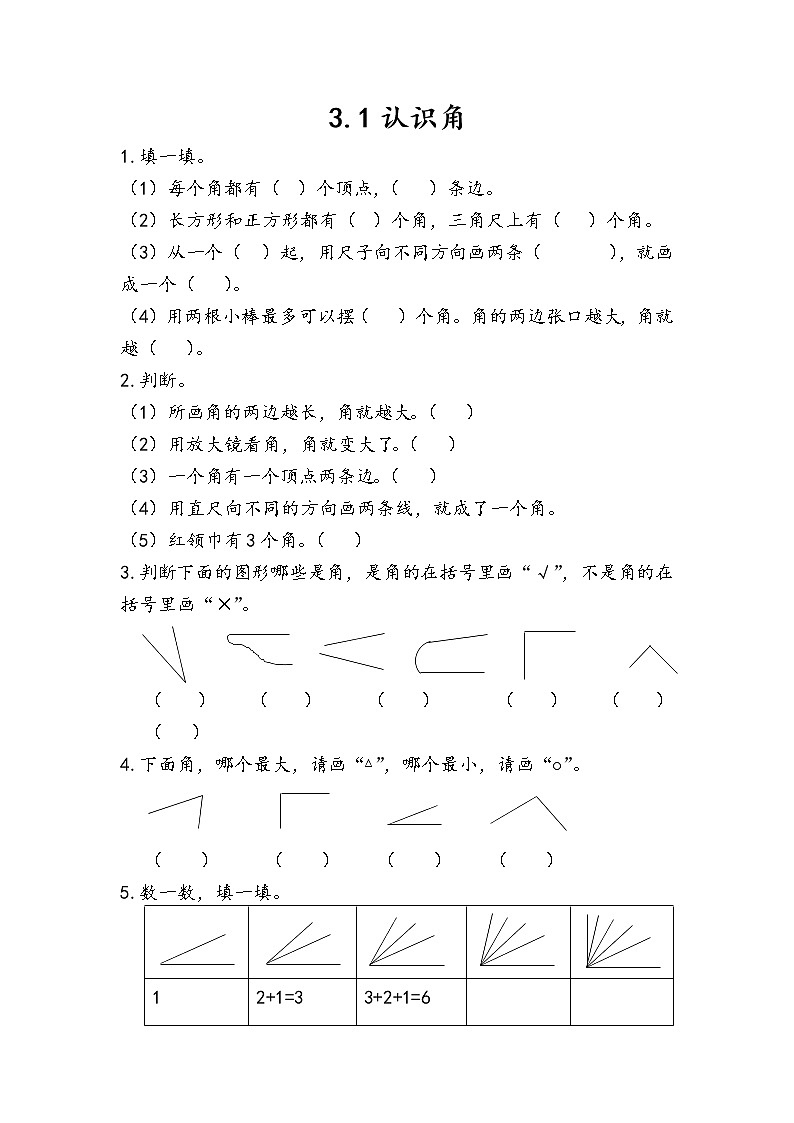 3.1认识角
1.填一填。
（1）每个角都有（  ）个顶点,（   ）条边。
（2）长方形和正方形都有（  ）个角，三角尺上有（   ）个角。
（3）从一个（  ）起，用尺子向不同方向画两条（       ），就画
成一个（   ）。
（4）用两根小棒最多可以摆（   ）个角。角的两边张口越大，角就
越（   ）。
2.判断。
（1）所画角的两边越长，角就越大。（   ）
（2）用放大镜看角，角就变大了。（   ）
（3）一个角有一个顶点两条边。（   ）
（4）用直尺向不同的方向画两条线，就成了一个角。
（5）红领巾有3个角。（   ）
3.判断下面的图形哪些是角，是角的在括号里画“√”，不是角的在
括号里画“×”。
（   ） （   ） （   ） （   ） （   ）
（   ）
4.下面角，哪个最大，请画“△”，哪个最小，请画“○”。
（   ） （   ） （   ） （   ）
5.数一数，填一填。
1 2+1=3 3+2+1=6